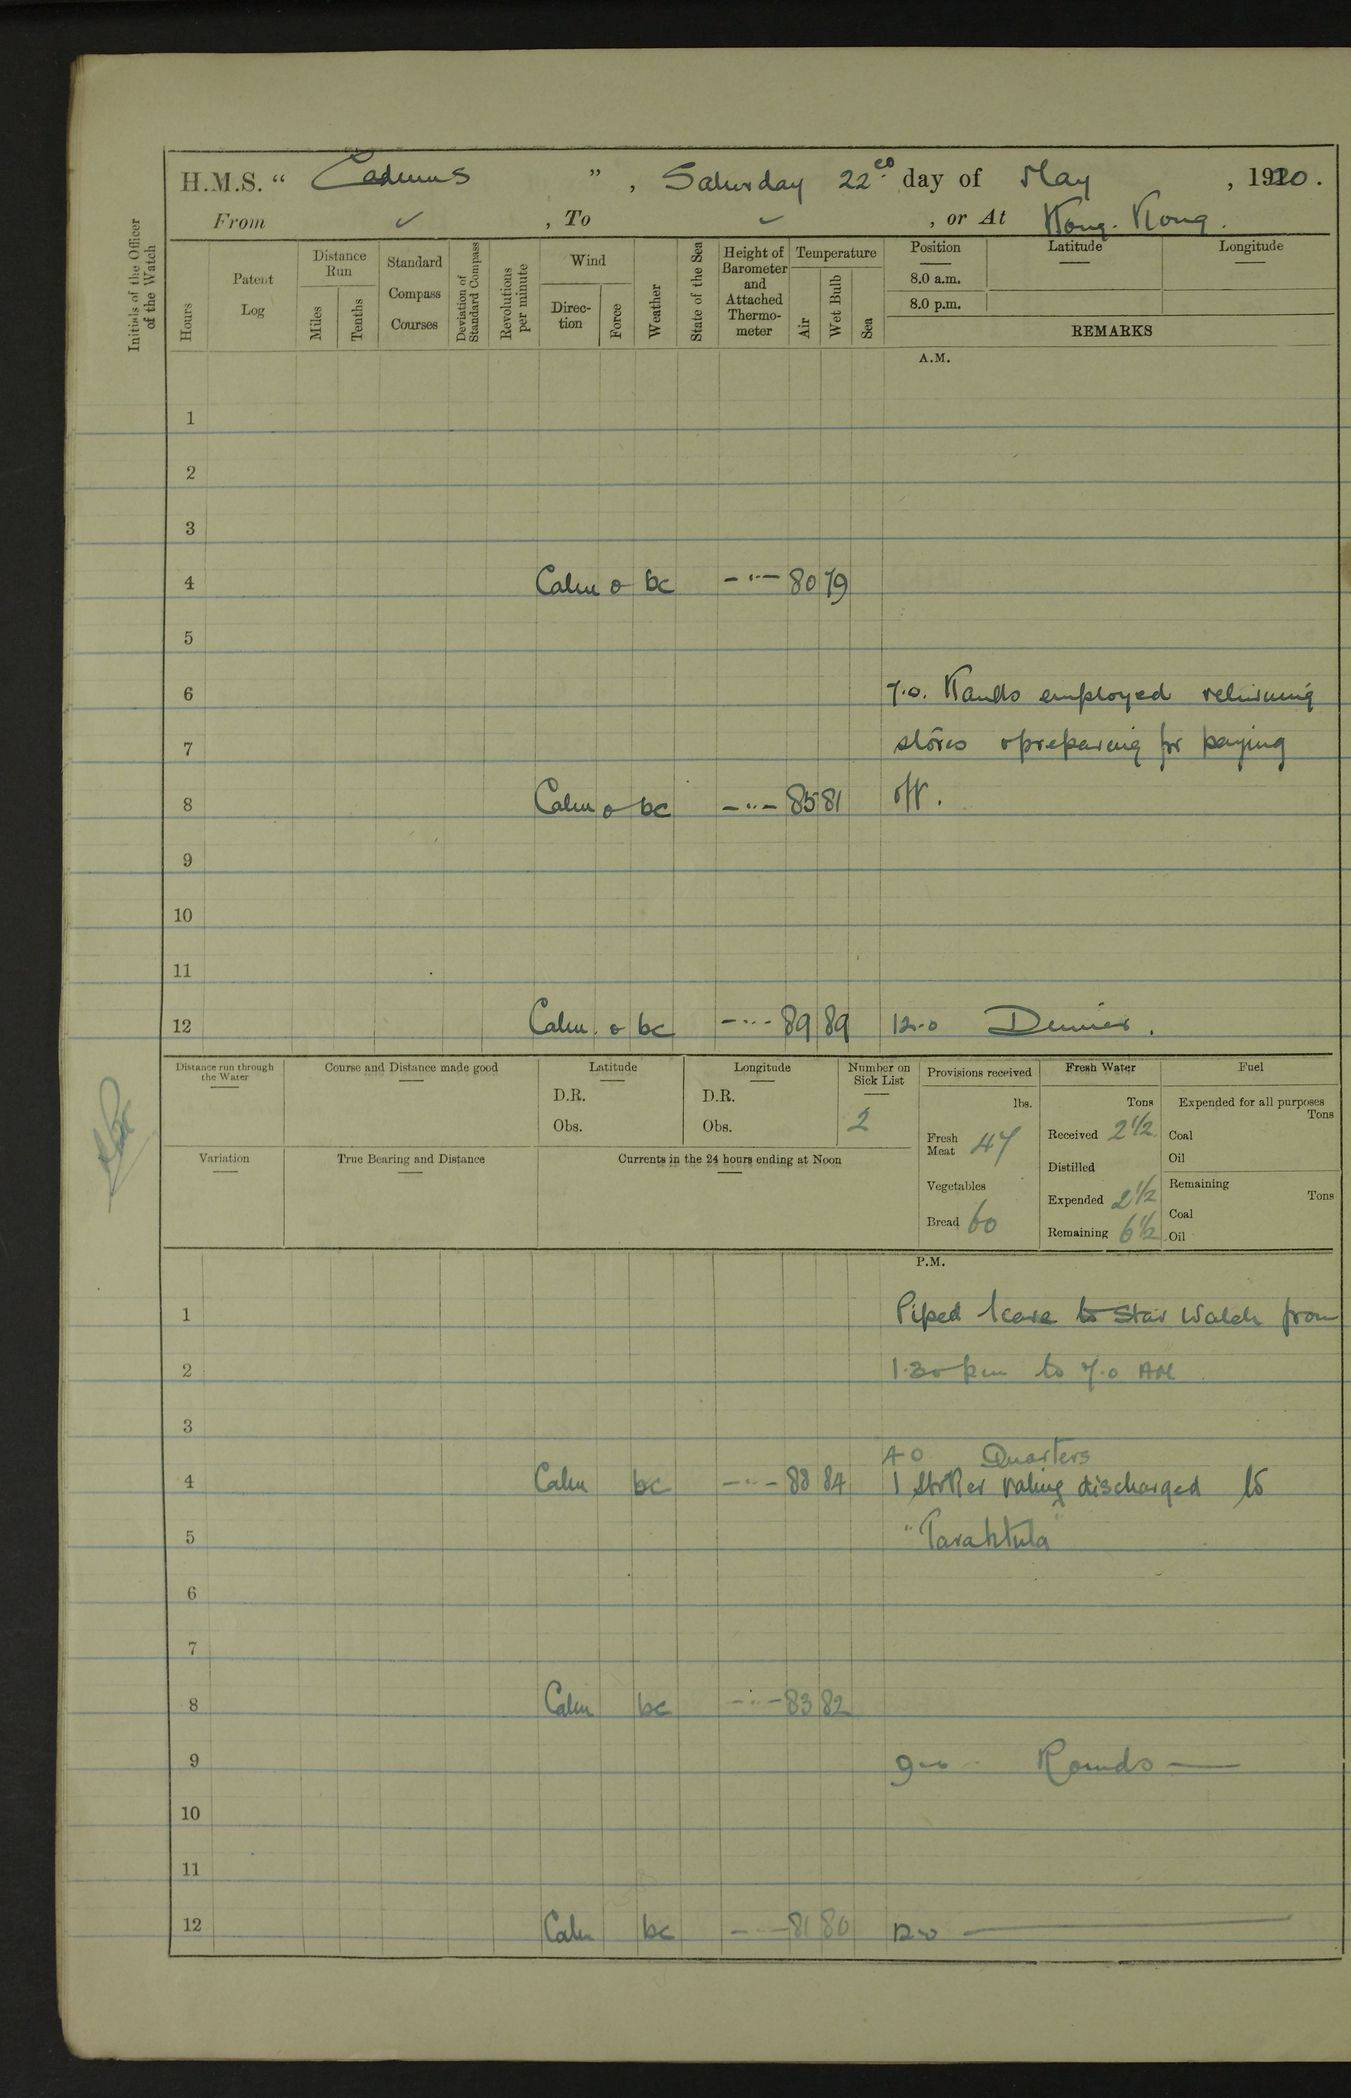 H.M.S. “ Cadmus ” , Saturday 22nd day of May , 1920 .
From ✓ , To ✓ , or At Hong-Kong.
Initials of the Officer of the Watch
Hours
Patent Log
Distance Run
Miles
Tenths
Standard Compass Courses
Deviation of Standard Compass
Revolutions per minute
Wind
Direc-tion
Force
Weather
State of the Sea
Height of Barometer and Attached Thermo-meter
Temperature
Air
Wet Bulb
Sea
Position
Latitude
Longitude
8.0 a.m.
8.0 p.m.
REMARKS
A.M.
1
2
3
4 Calm o bc -"- 80 79
5
6 7.0. Hands employed returning
7 stores & preparing for paying
8 Calm o bc -"- 85 81 off.
9
10
11
12 Calm o bc -"- 89 89 12.0 Dinner.
Distance run through the Water
Course and Distance made good
Latitude
D.R.
Obs.
Longitude
D.R.
Obs.
Number on Sick List
2
Provisions received
lbs.
Fresh Meat 47
Vegetables
Bread 60
Fresh Water
Tons
Received 2½
Distilled
Expended 2½
Remaining 6½
Fuel
Expended for all purposes
Tons
Coal
Oil
Remaining
Tons
Coal
Oil
Variation
True Bearing and Distance
Currents in the 24 hours ending at Noon
P.M.
1 Piped leave to Star Watch from
2 1.30 pm to 7.0 AM
3
4.0 Quarters
4 Calm bc -"- 88 84 1 Stoker rating discharged to
5 "Tarantula"
6
7
8 Calm bc -"- 83 82
9 9.0 Rounds
10
11
12 Calm bc -"- 81 80 12.0